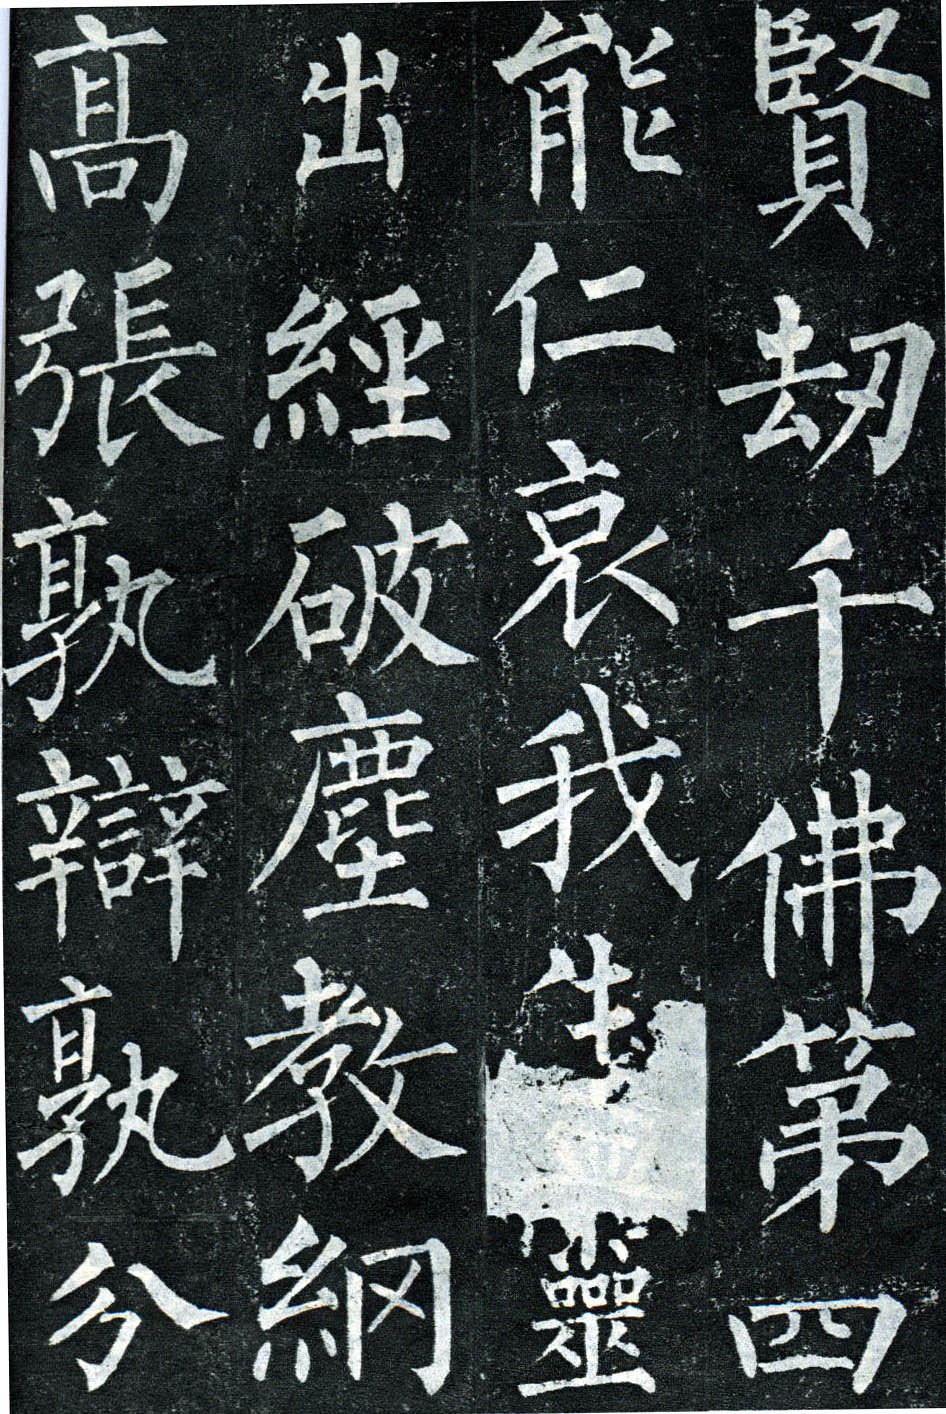 賢刼千佛第四
能仁哀我生靈
出經破塵教網
髙張孰辯孰分